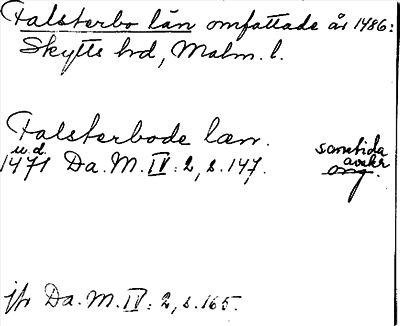 Falsterbo län omfattade år 1486:
Skytts hrd, Malm. l.
Falsterbode læn.
u.d.
1471 Da. M. IV: 2, s. 147.
samtida
avskr
orig.
jfr Da. M. IV: 2, s. 165.